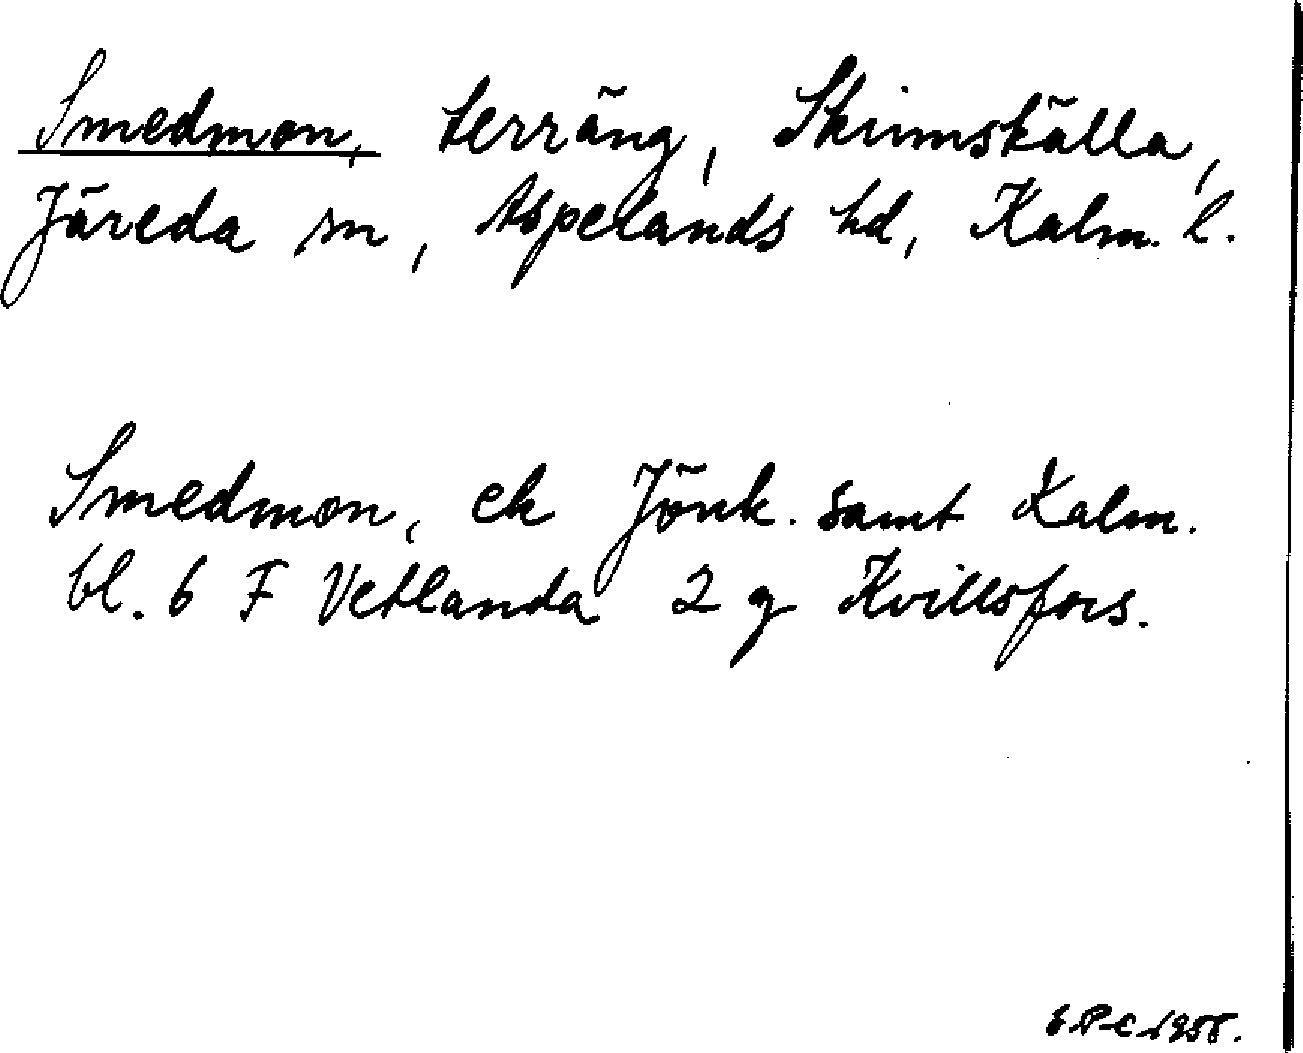 Smedmon, terräng, Skrimställa,
Järeda sn, Aspelands hd, Kalm. l.
Smedmon, ek Jönk. samt Kalm.
bl. 6 F Vetlanda 2 g Kvillsfors.